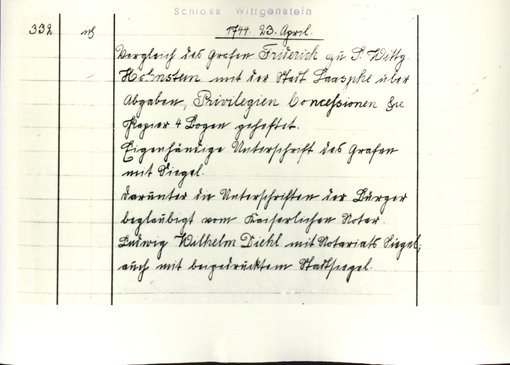 Schloss Wittgenstein
332 1744. 23. April.
Vergleich des Grafen Friderich zu S. Wittg.
Hohnstein mit der Stadt Laasphe über
Abgaben, Privilegien Concessionen &c
Papier 4 Bogen geheftet.
Eigenhändige Unterschrift des Grafen
mit Siegel.
Darunter die Unterschriften der Bürger
beglaubigt vom Kaiserlichen Notar
Ludwig Wilhelm Diehl mit Notariats Siegel;
auch mit beigedrücktem Stadtsiegel.